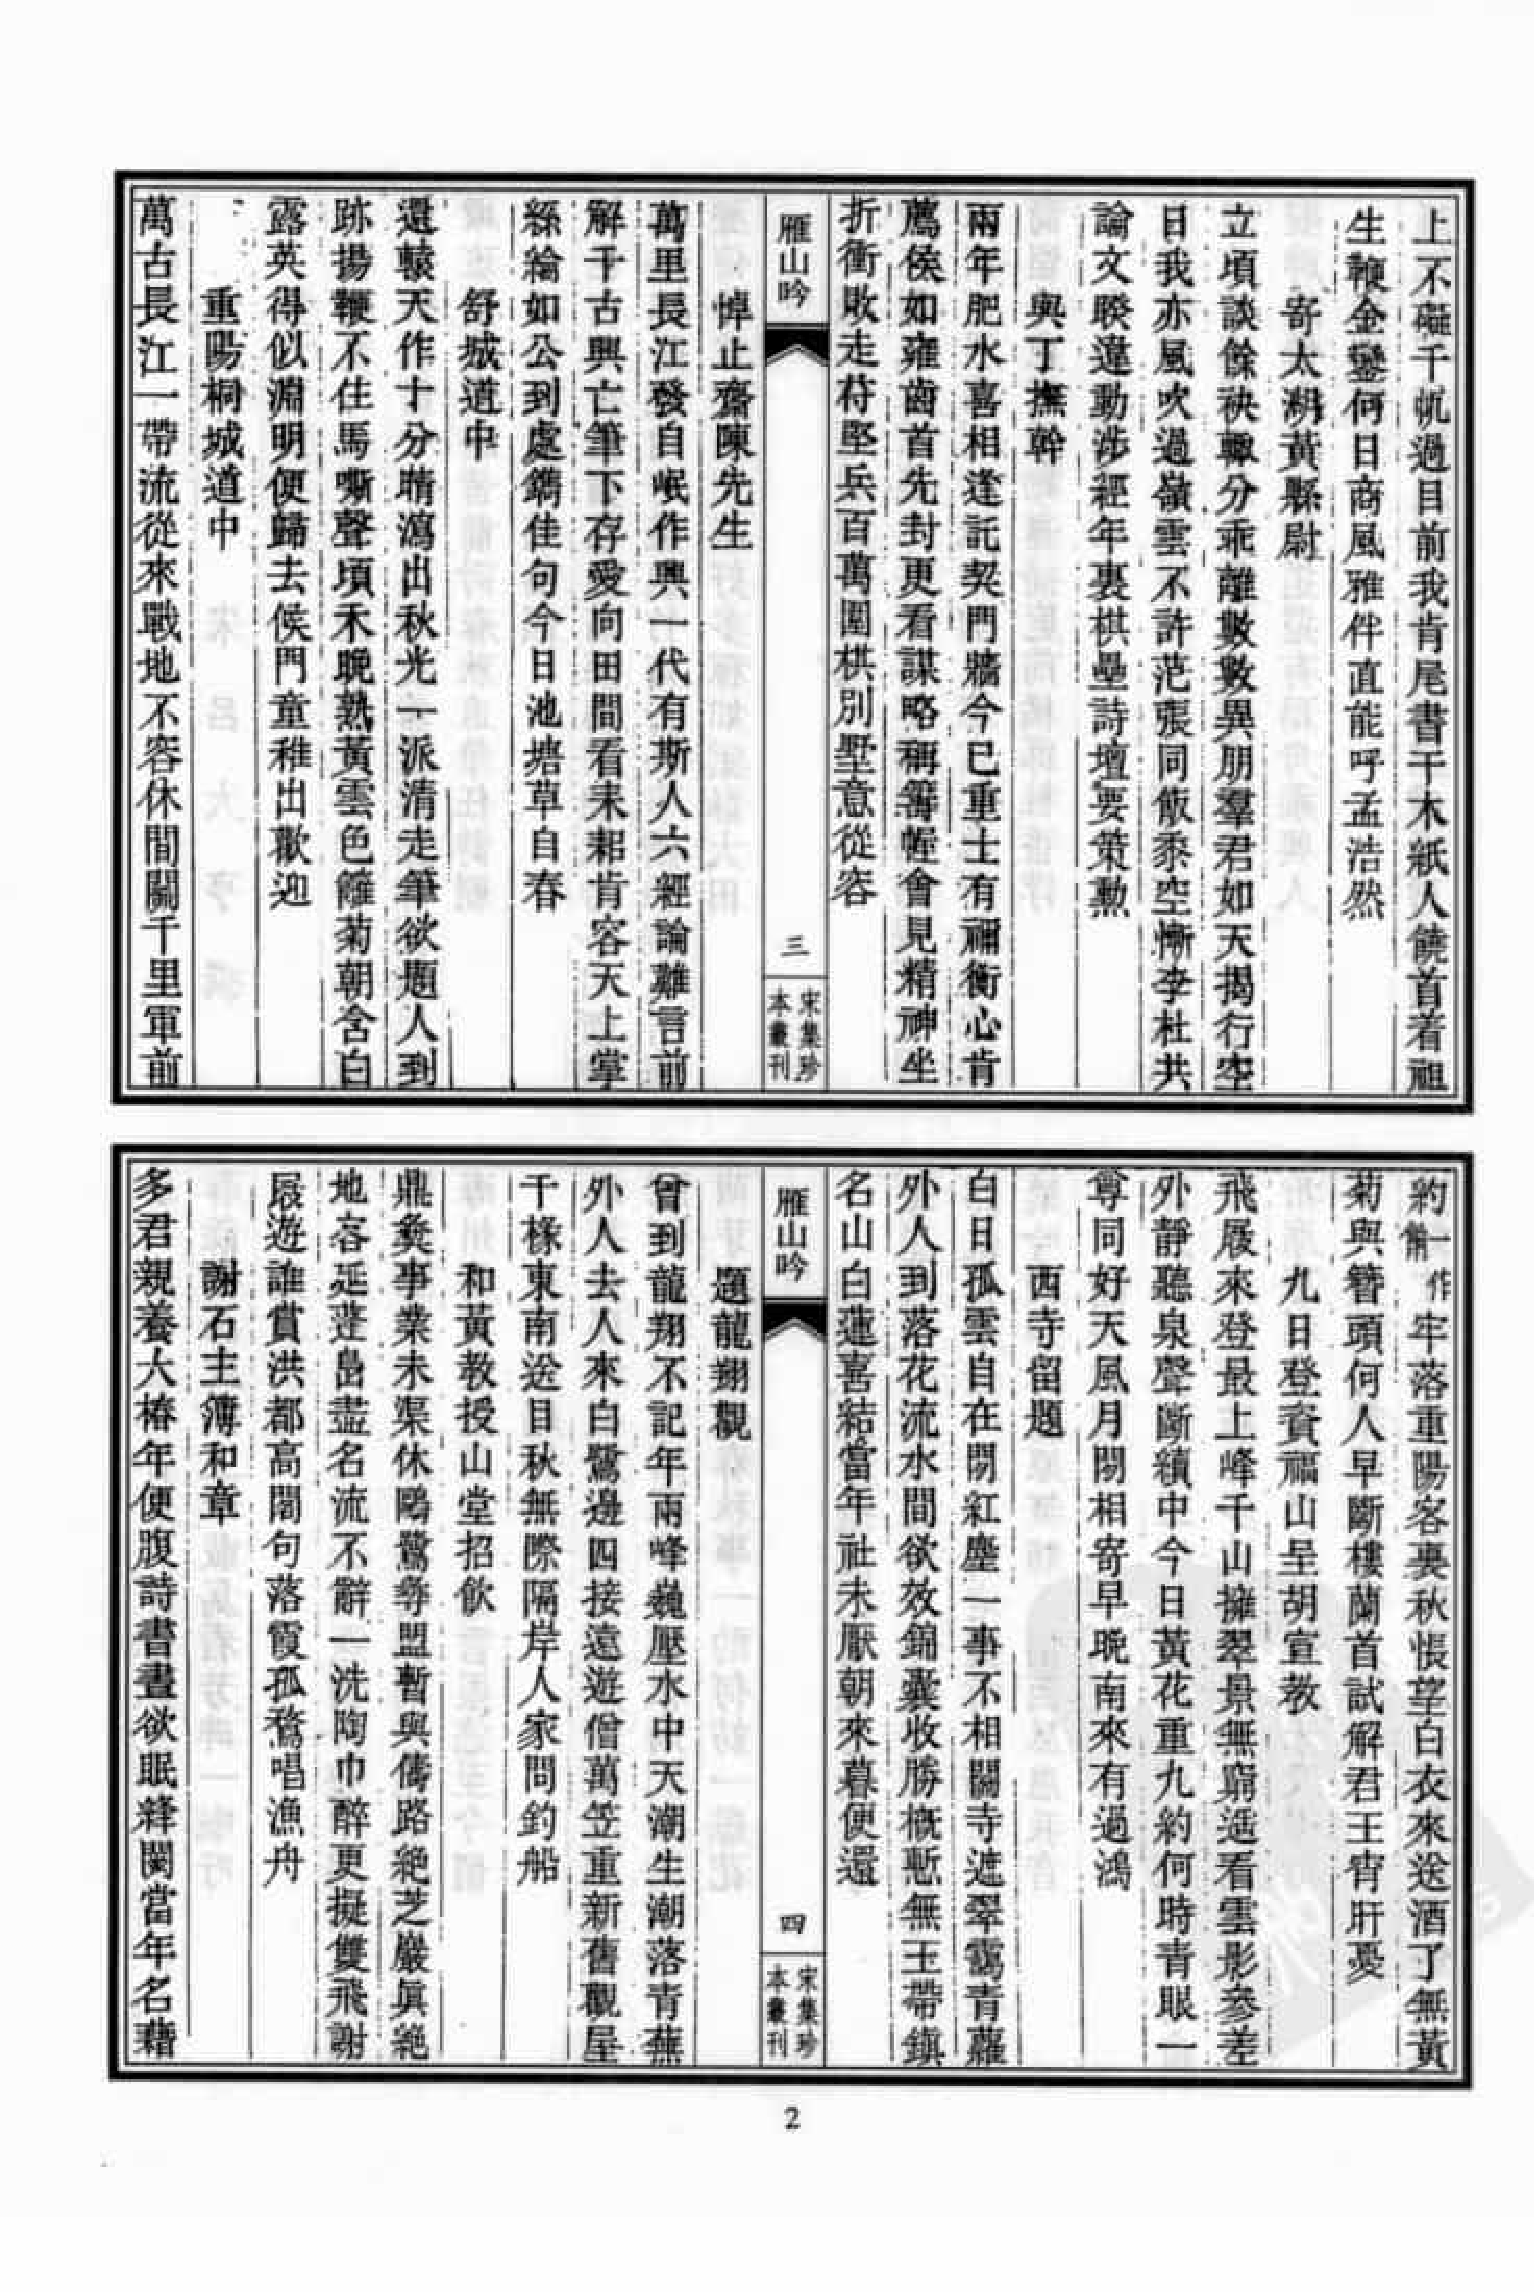 上不礙千帆過目前我肯尾書干木紙人饒首着祖
生鞭金鑾何日商風雅伴直能呼孟浩然
寄太湖黃縣尉
立頃談餘袂轉分乖離數數異朋羣君如天揭行空
日我亦風吹過嶺雲不許范張同飯黍空慚李杜共
論文睽違動涉經年裏棋壘詩壇要策勲
與丁撫幹
兩年肥水喜相逢託契門牆今已重士有禰衡心肯
薦侯如雍齒首先封更看謀略稱籌幄會見精神坐
折衝敗走苻堅兵百萬圍棋別墅意從容
雁山吟
三
宋集珍
本叢刊
悼止齋陳先生
萬里長江發自岷作興一代有斯人六經論難言前
解千古興亡筆下存愛向田間看耒耜肯容天上掌
絲綸如公到處鐫佳句今日池塘草自春
舒城道中
還轅天作十分晴瀉出秋光一派清走筆欲題人到
跡揚鞭不住馬嘶聲頃禾晚熟黃雲色籬菊朝含白
露英得似淵明便歸去候門童稚出歡迎
重陽桐城道中
萬古長江一帶流從來戰地不容休間關千里軍前
約一作
牢落重陽客裏秋悵望白衣來送酒了無黃
菊與簪頭何人早斷樓蘭首試解君王宵肝憂
九日登資福山呈胡宣教
飛屐來登最上峰千山擁翠景無窮适看雲影參差
外靜聽泉聲斷續中今日黃花重九約何時青眼一
尊同好天風月閒相寄早晩南來有過鴻
西寺留題
白日孤雲自在閒紅塵一事不相關寺遮翠靄青蘿
外人到落花流水間欲效錦囊收勝概慙無玉帶鎮
名山白蓮喜結當年社未厭朝來暮便還
雁山吟
四
宋集珍
本叢刊
題龍翔觀
曾到龍翔不記年兩峰巍壓水中天潮生潮落青蕪
外人去人來白鷺邊四接遠遊僧萬笠重新舊觀屋
千椽東南送目秋無際隔岸人家問釣船
和黃教授山堂招飲
鼎彝事業未渠休鷗鷺尋盟暫與儔路絶芝巖眞絶
地容延蓬島盡名流不辭一洗陶巾醉更擬雙飛謝
屐遊誰賞洪都高閣句落霞孤鶩唱漁舟
謝石主簿和章
多君親養大椿年便腹詩書晝欲眠絳闕當年名藉
2